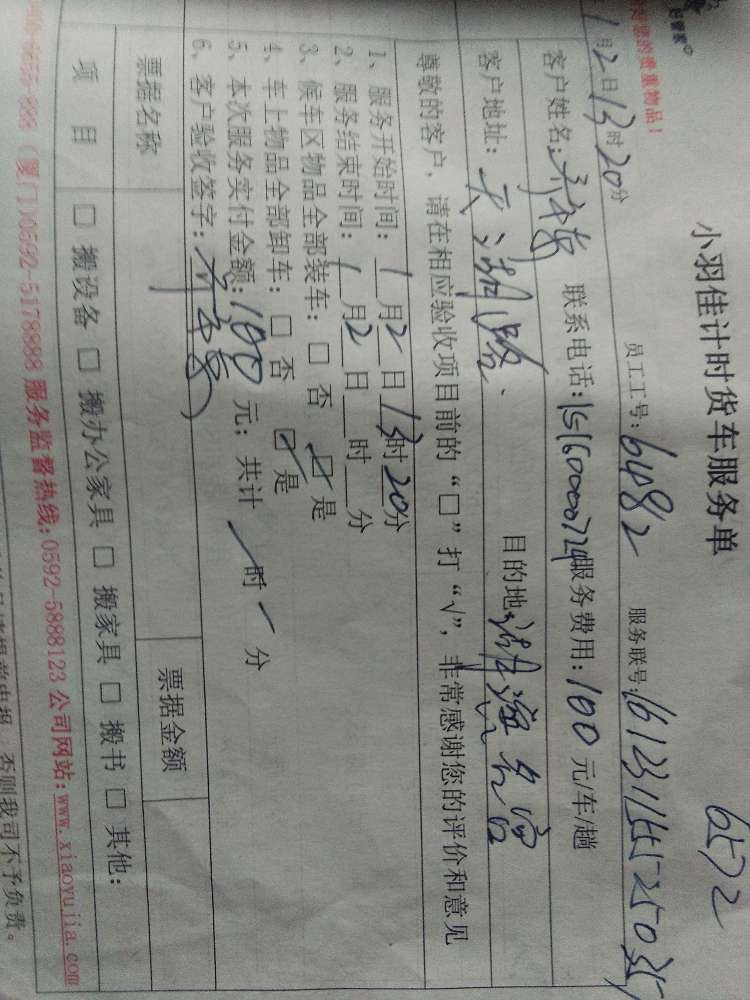 好管家
的贵重物品！
小羽佳计时货车服务单
6572
1月2日13时20分
员工工号：6482
服务联号：
客户姓名：
联系电话：15160000724
服务费用：100元/车/趟
客户地址：天湖路.
目的地：
尊敬的客户，请在相应验收项目前的“□”打“√”，非常感谢您的评价和意见
1、服务开始时间：1月2日13时20分
2、服务结束时间：1月2日 时 分
3、候车区物品全部装车：□ 否 ☑ 是
4、车上物品全部卸车：□ 否 ☑ 是
5、本次服务实付金额：100元；共计 时 分
6、客户验收签字：
票据名称
票据金额
项 目
□ 搬设备 □ 搬办公家具 □ 搬家具 □ 搬书 □ 其他：
（厦门）0592-5178888 服务监督热线：0592-5888123 公司网站：www.xiaoyujia.com
否则我司不予负责。